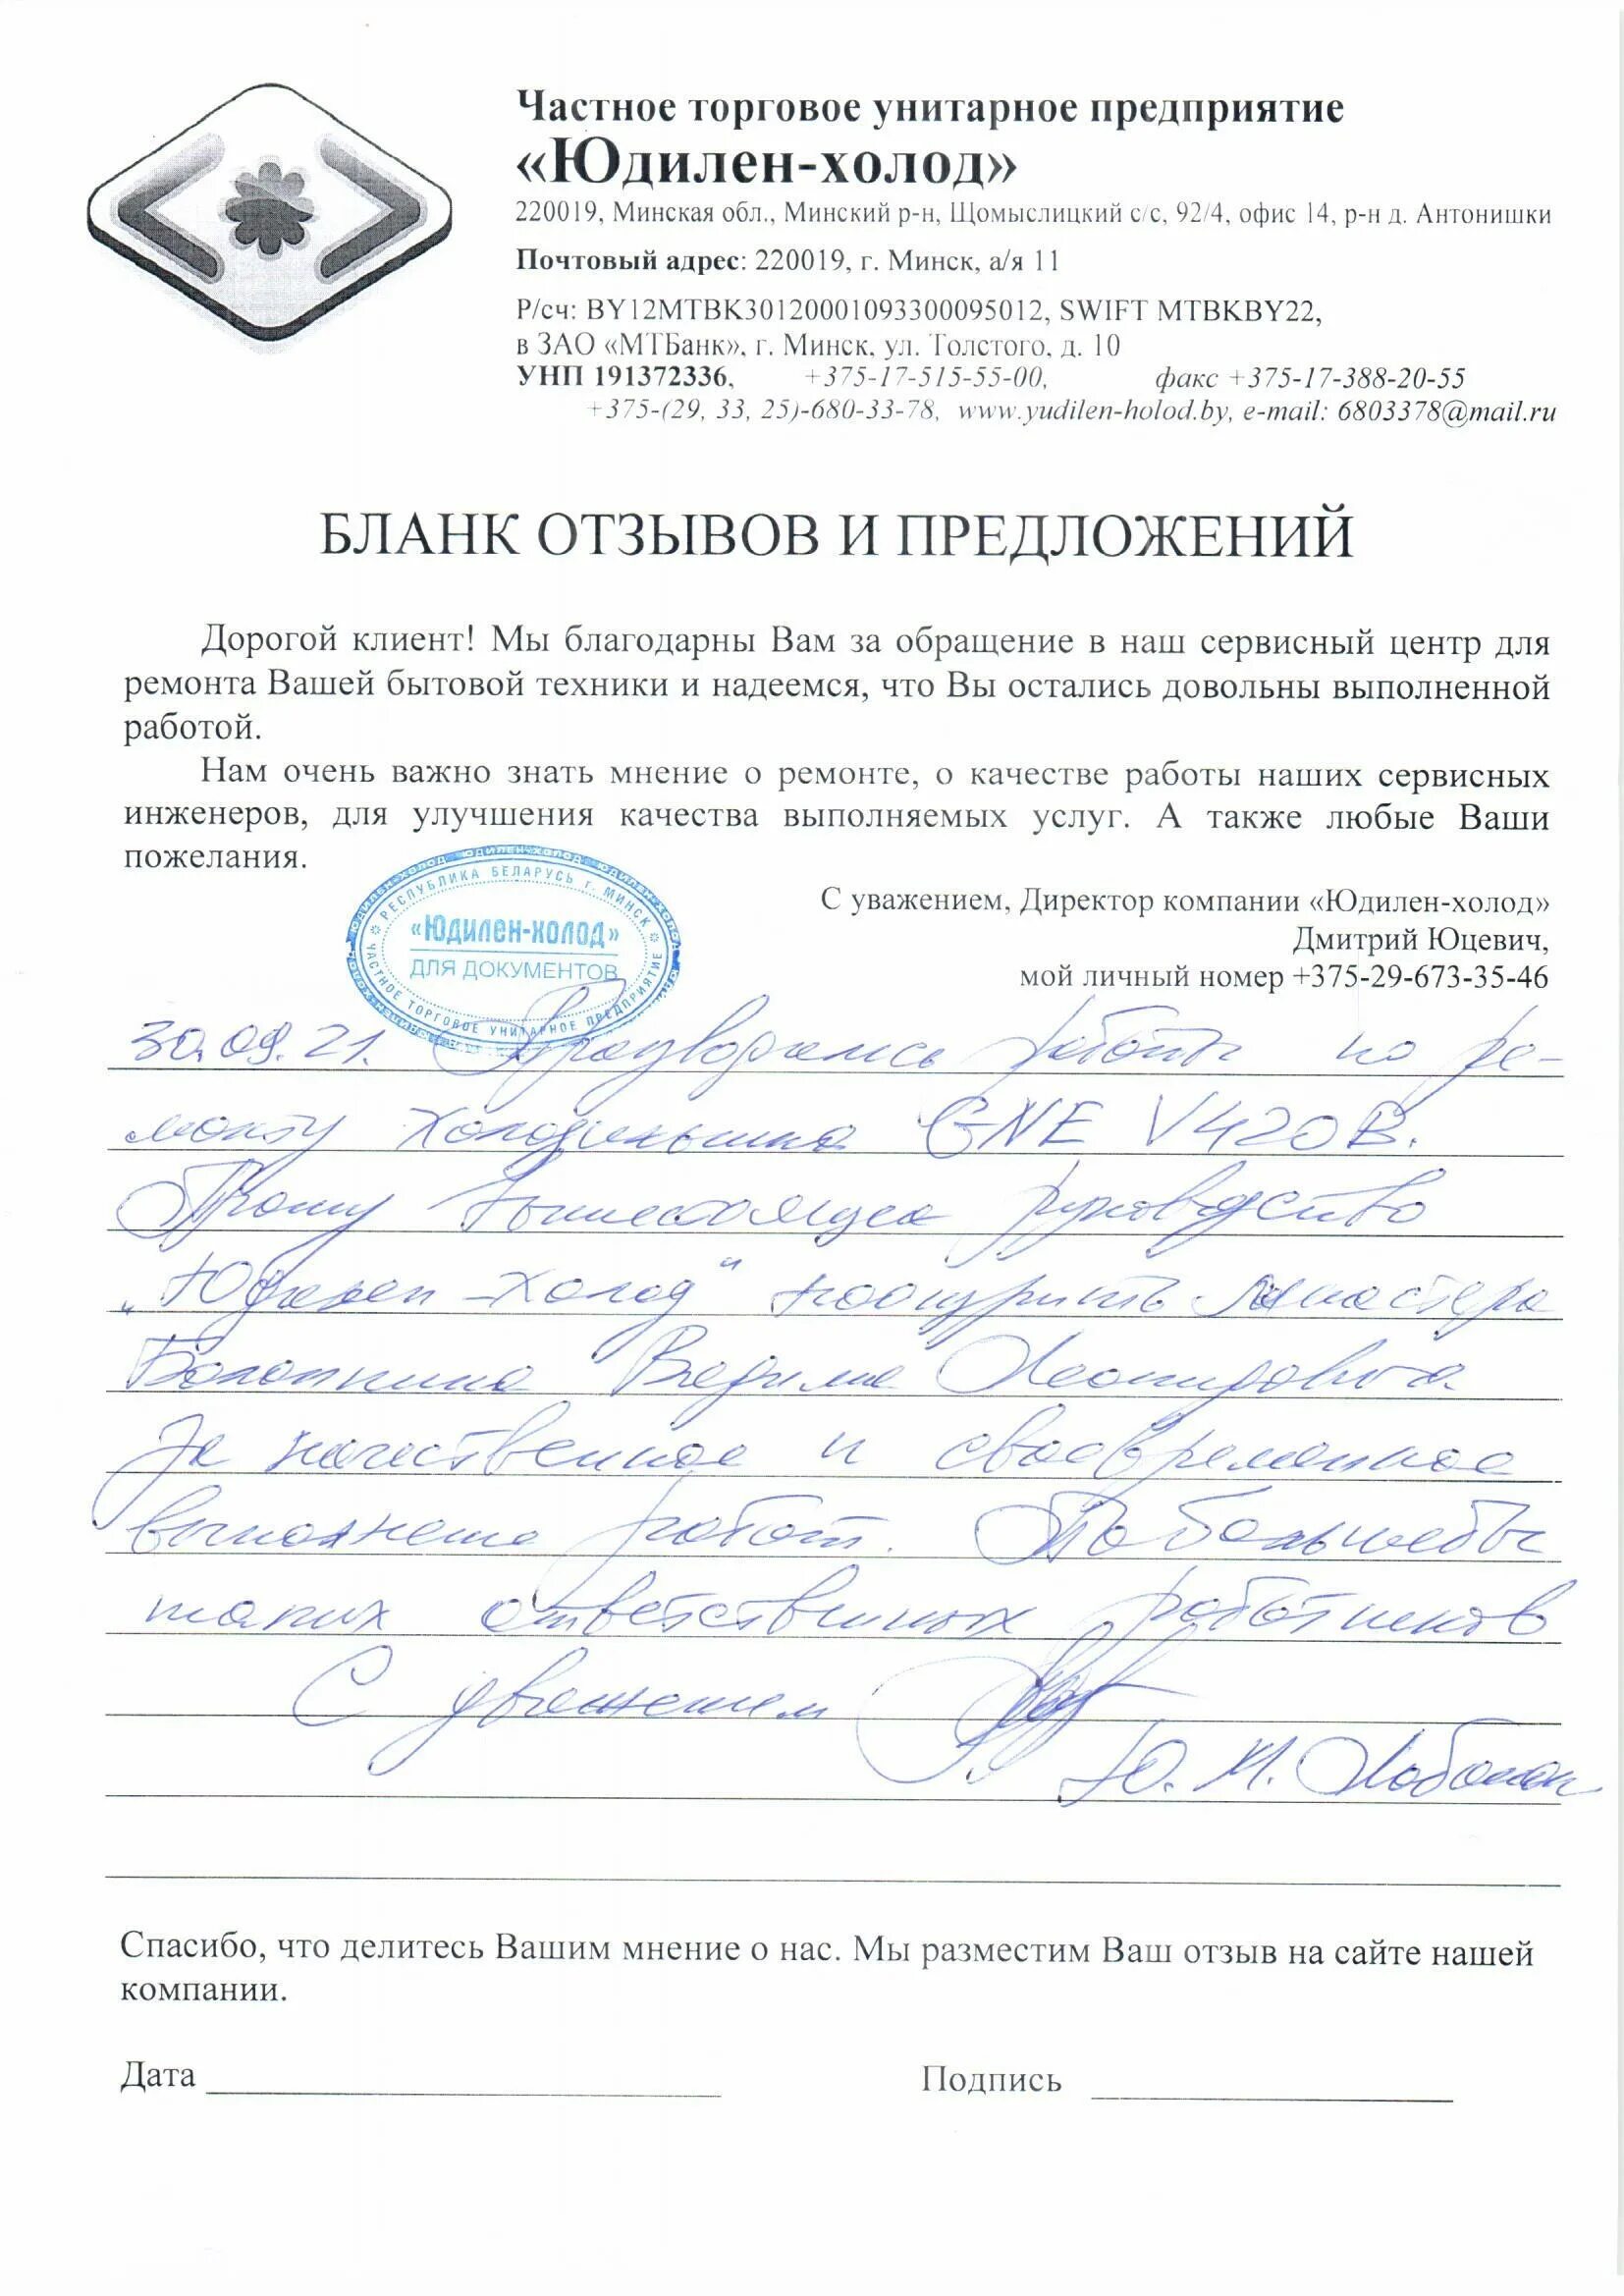 Частное торговое унитарное предприятие
«Юдилен-холод»
220019, Минская обл., Минский р-н, Щомыслицкий с/с, 92/4, офис 14, р-н д. Антонишки
Почтовый адрес: 220019, г. Минск, а/я 11
Р/сч: BY12MTBK30120001093300095012, SWIFT MTBKBY22,
в ЗАО «МТБанк», г. Минск, ул. Толстого, д. 10
УНП 191372336, +375-17-515-55-00, факс +375-17-388-20-55
+375-(29, 33, 25)-680-33-78, www.yudilen-holod.by, e-mail: 6803378@mail.ru
БЛАНК ОТЗЫВОВ И ПРЕДЛОЖЕНИЙ
Дорогой клиент! Мы благодарны Вам за обращение в наш сервисный центр для
ремонта Вашей бытовой техники и надеемся, что Вы остались довольны выполненной
работой.
Нам очень важно знать мнение о ремонте, о качестве работы наших сервисных
инженеров, для улучшения качества выполняемых услуг. А также любые Ваши
пожелания.
ЮДИЛЕН-ХОЛОД ЮДИЛЕН-ХОЛОД ЮДИЛЕН-ХОЛОД
РЕСПУБЛИКА БЕЛАРУСЬ г. МИНСК
«Юдилен-холод»
ДЛЯ ДОКУМЕНТОВ
ЧАСТНОЕ ТОРГОВОЕ УНИТАРНОЕ ПРЕДПРИЯТИЕ
С уважением, Директор компании «Юдилен-холод»
Дмитрий Юцевич,
мой личный номер +375-29-673-35-46
30.09.21. Производились работы по ре-
монту холодильника GNE V420B.
Прошу вышестоящее руководство
„Юдилен-холод" поощрить мастера
Вадима Леонидовича
За качественное и своевременное
выполнение работ. Побольше бы
таких ответственных работников
С уважением
Ю. М.
Спасибо, что делитесь Вашим мнение о нас. Мы разместим Ваш отзыв на сайте нашей
компании.
Дата Подпись